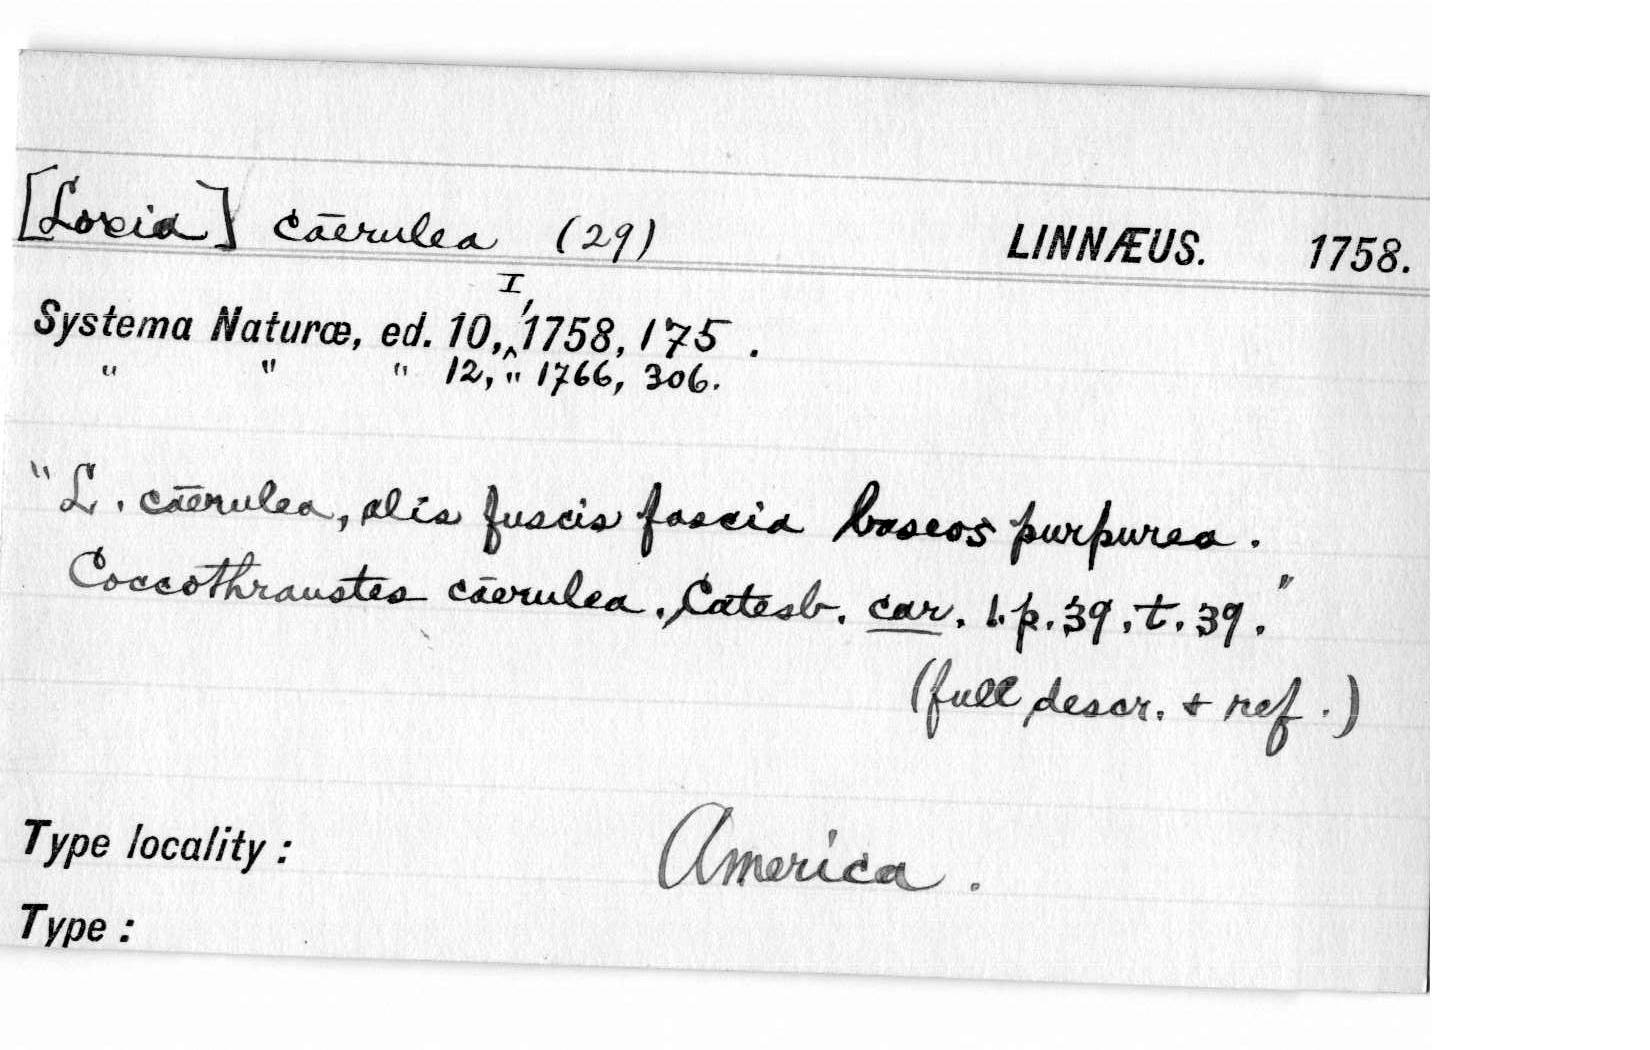 [Loxia] cāerulea (29) LINNÆUS. 1758.
Systema Naturæ, ed. 10, I, 1758, 175.
" " " 12, " 1766, 306.
"L. cāerulea, alis fuscis fascia baseos purpurea.
Coccothraustes cāerulea. Catesb. car. 1. p. 39, t. 39."
(full descr. + ref.)
Type locality: America.
Type: